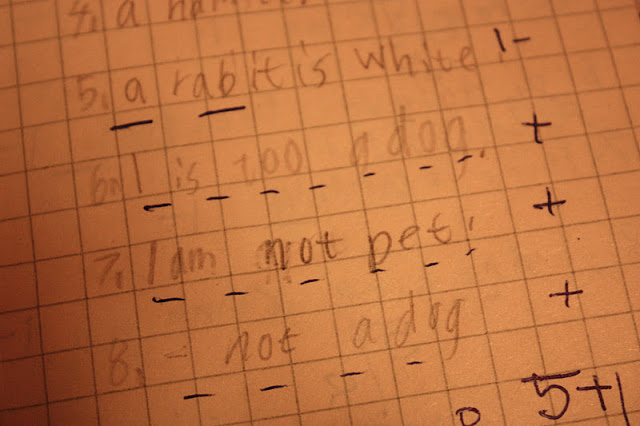 4. a
5. a rabit is white. 1-
6. I is not a dog. +
7. I am not pet. +
8. - not a dog +
5+1